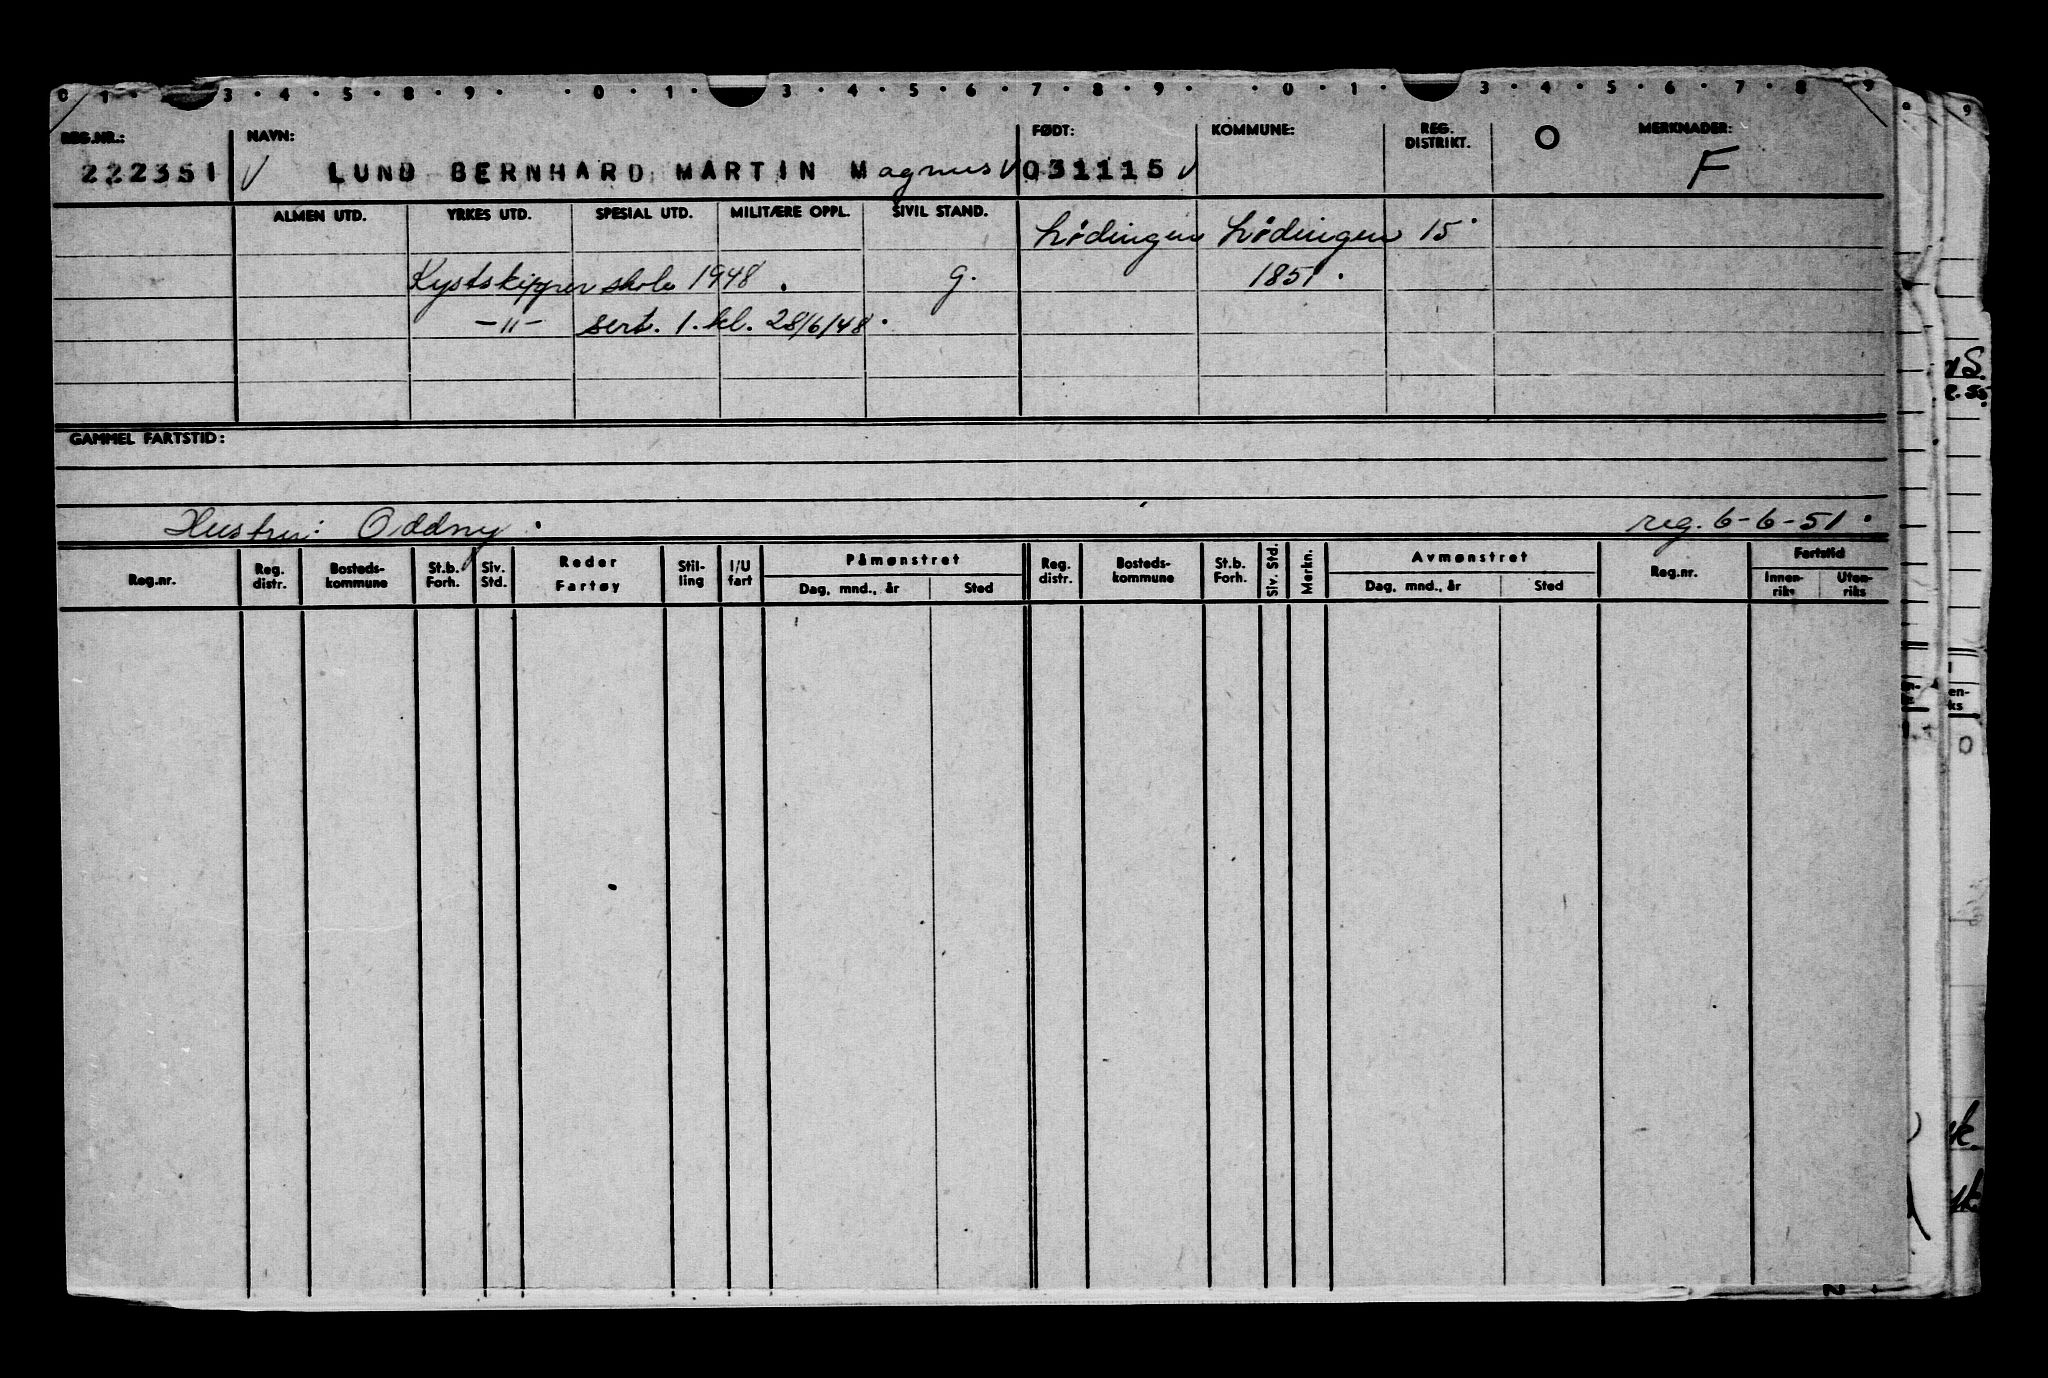 0 1 · 3 · 4 · 5 · 8 · 9 · · 0 · 1 · 3 · 4 · 5 · 6 · 7 · 8 · 9 · · 0 · 1 · 3 · 4 · 5 · 6 · 7 · 8 9
REG.NR.: NAVN: FØDT: KOMMUNE: REG. DISTRIKT. O MERKNADER:
222351 √ LUND BERNHARD MARTIN Magnus √ 031115 √ F
ALMEN UTD. YRKES UTD. SPESIAL UTD. MILITÆRE OPPL. SIVIL STAND. Lødingen Lødingen 15.
Kystskipper skole 1948. g. 1851.
-"- sert. 1. kl. 28/6/48.
GAMMEL FARTSTID:
Hustru: Oddny. reg. 6-6-51.
Reg.nr. Reg. distr. Bosteds-kommune St.b. Forh. Siv. Std. Reder Fartøy Stil-ling I/U fart Påmønstret Reg. distr. Bosteds-kommune St.b. Forh. Siv. Std. Merkn. Avmønstret Reg.nr. Fartstid
Dag, mnd., år Sted Dag, mnd., år Sted Innen-riks Uten-riks